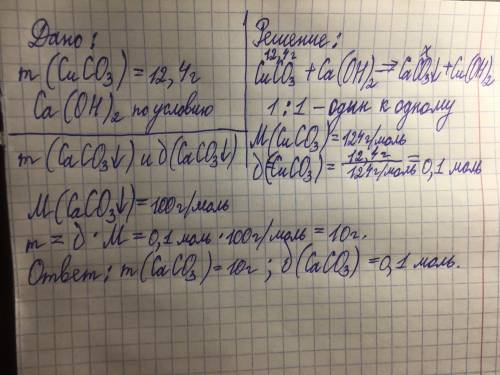 Дано:
m(CuCO₃) = 12,4г
Ca(OH)₂ по условию
m(CaCO₃↓) и δ(CaCO₃↓)
Решение:
12,4г x
CuCO₃ + Ca(OH)₂ ⇒ CaCO₃↓ + Cu(OH)₂
1 : 1 – один к одному
M(CuCO₃) = 124г/моль
δ(CuCO₃) = 12,4г / 124г/моль = 0,1 моль
M(CaCO₃↓) = 100г/моль
m = δ · M = 0,1 моль · 100г/моль = 10г.
Ответ: m(CaCO₃) = 10г ; δ(CaCO₃) = 0,1 моль.